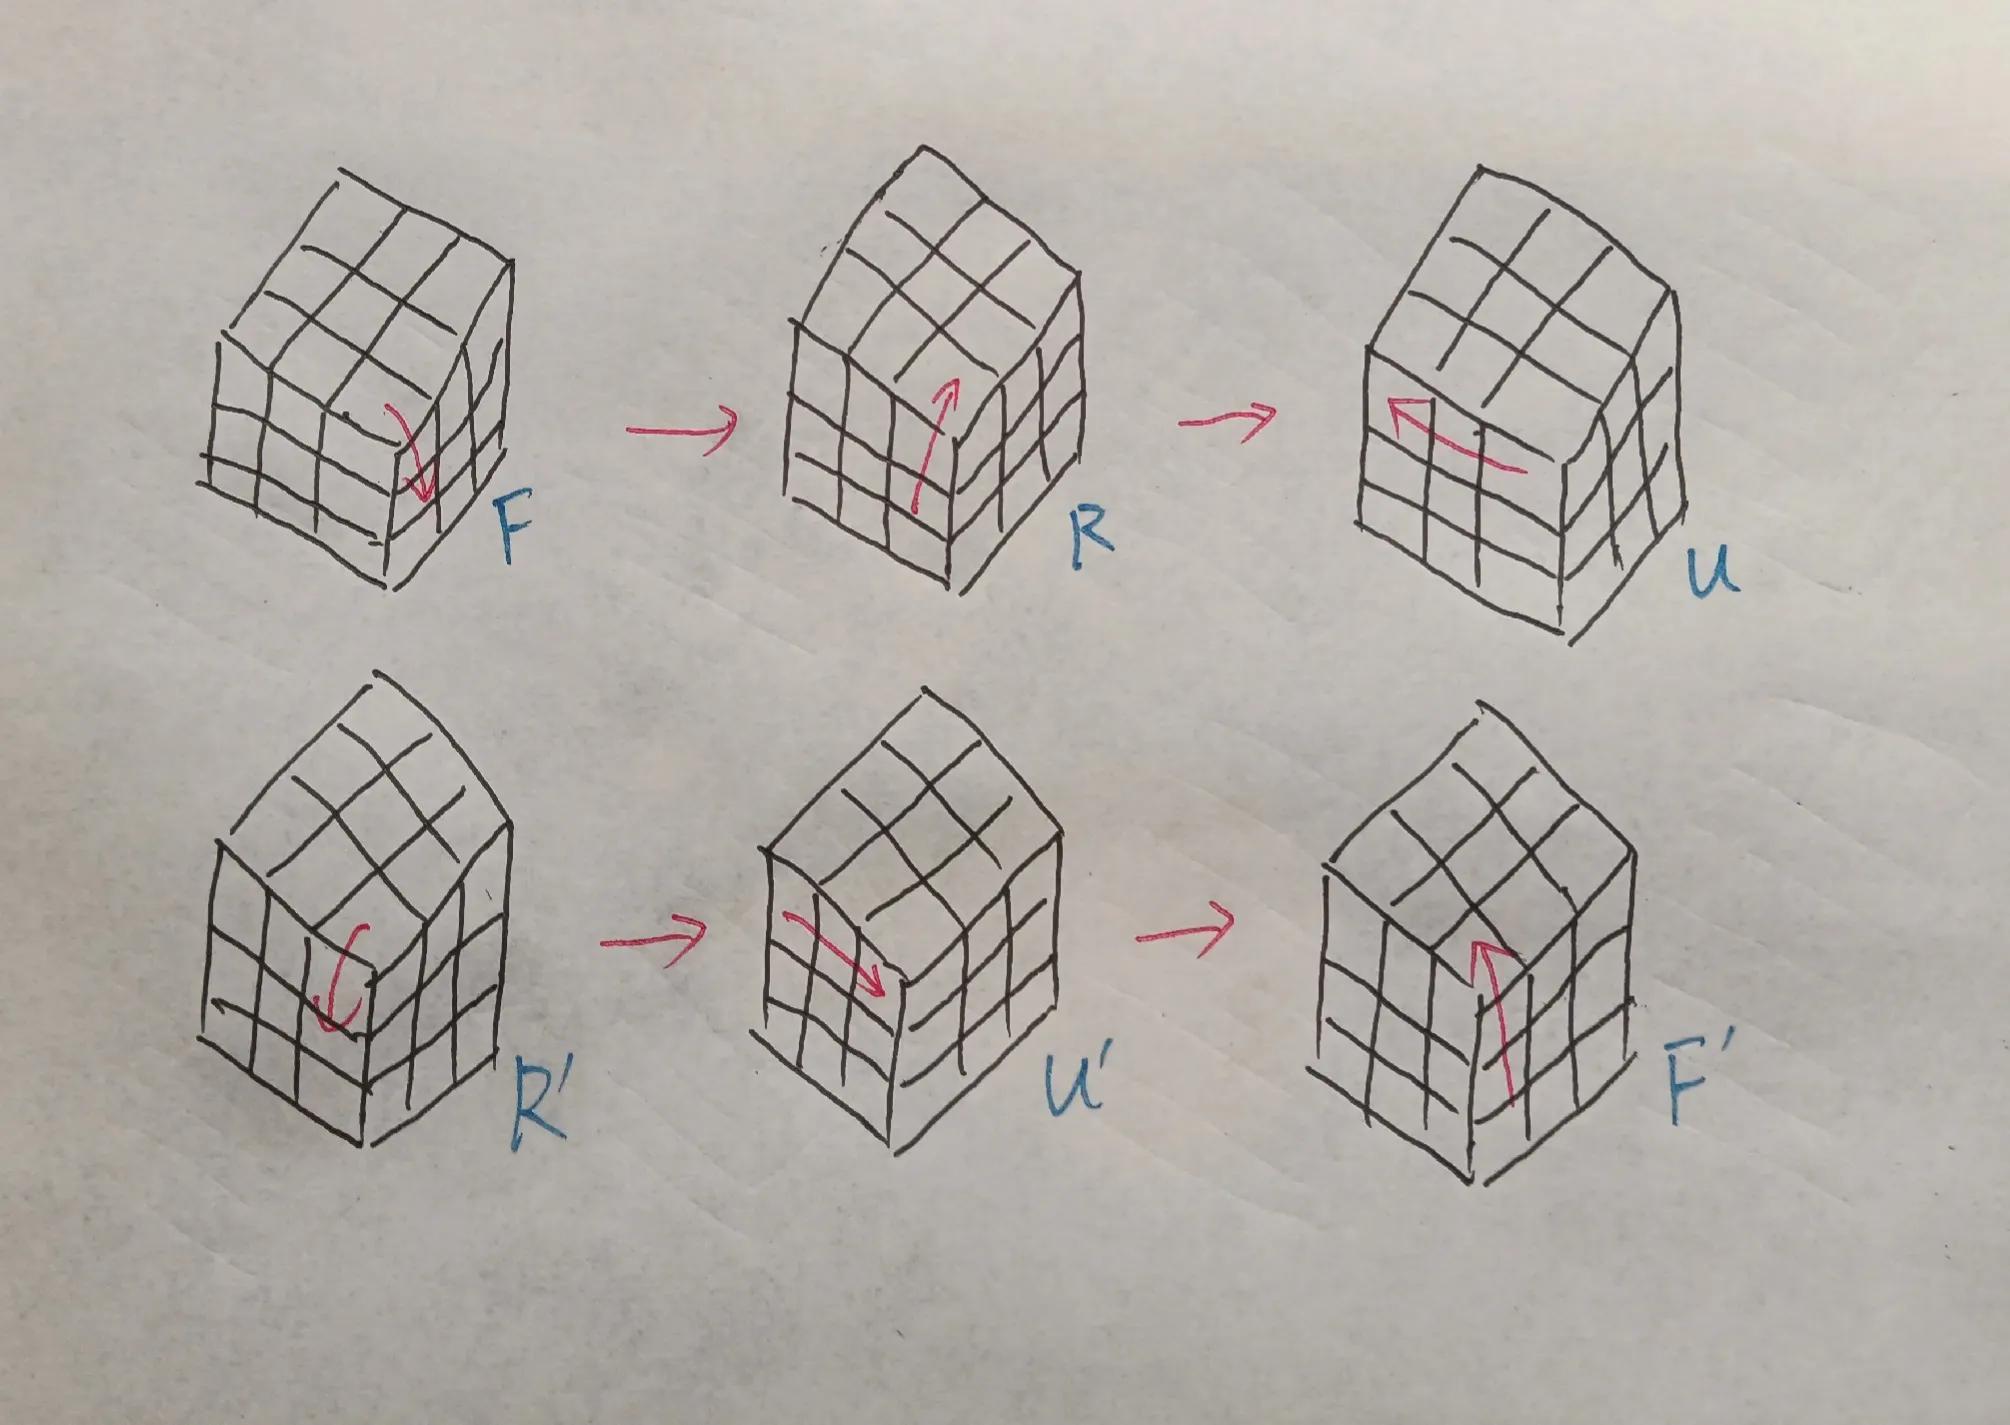 F R U
R' U' F'